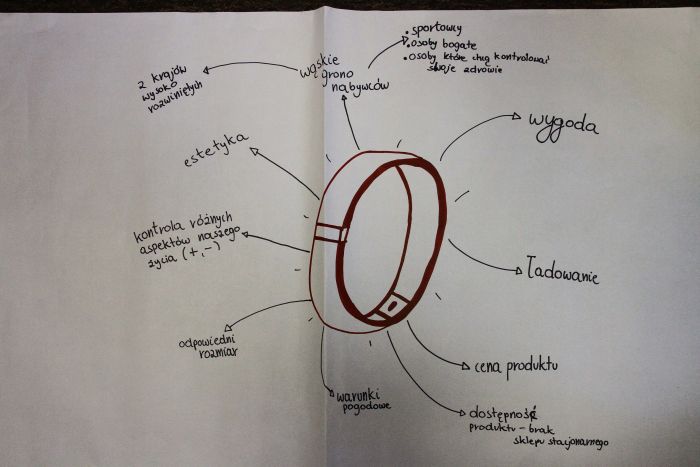 • sportowcy
• osoby bogate
• osoby które chcą kontrolować
swoje zdrowie
wąskie
grono
nabywców
z krajów
wysoko
rozwiniętych
wygoda
estetyka
kontrola różnych
aspektów naszego
życia (+,-)
ładowanie
odpowiedni
rozmiar
cena produktu
warunki
pogodowe
dostępność
produktu - brak
sklepu stacjonarnego